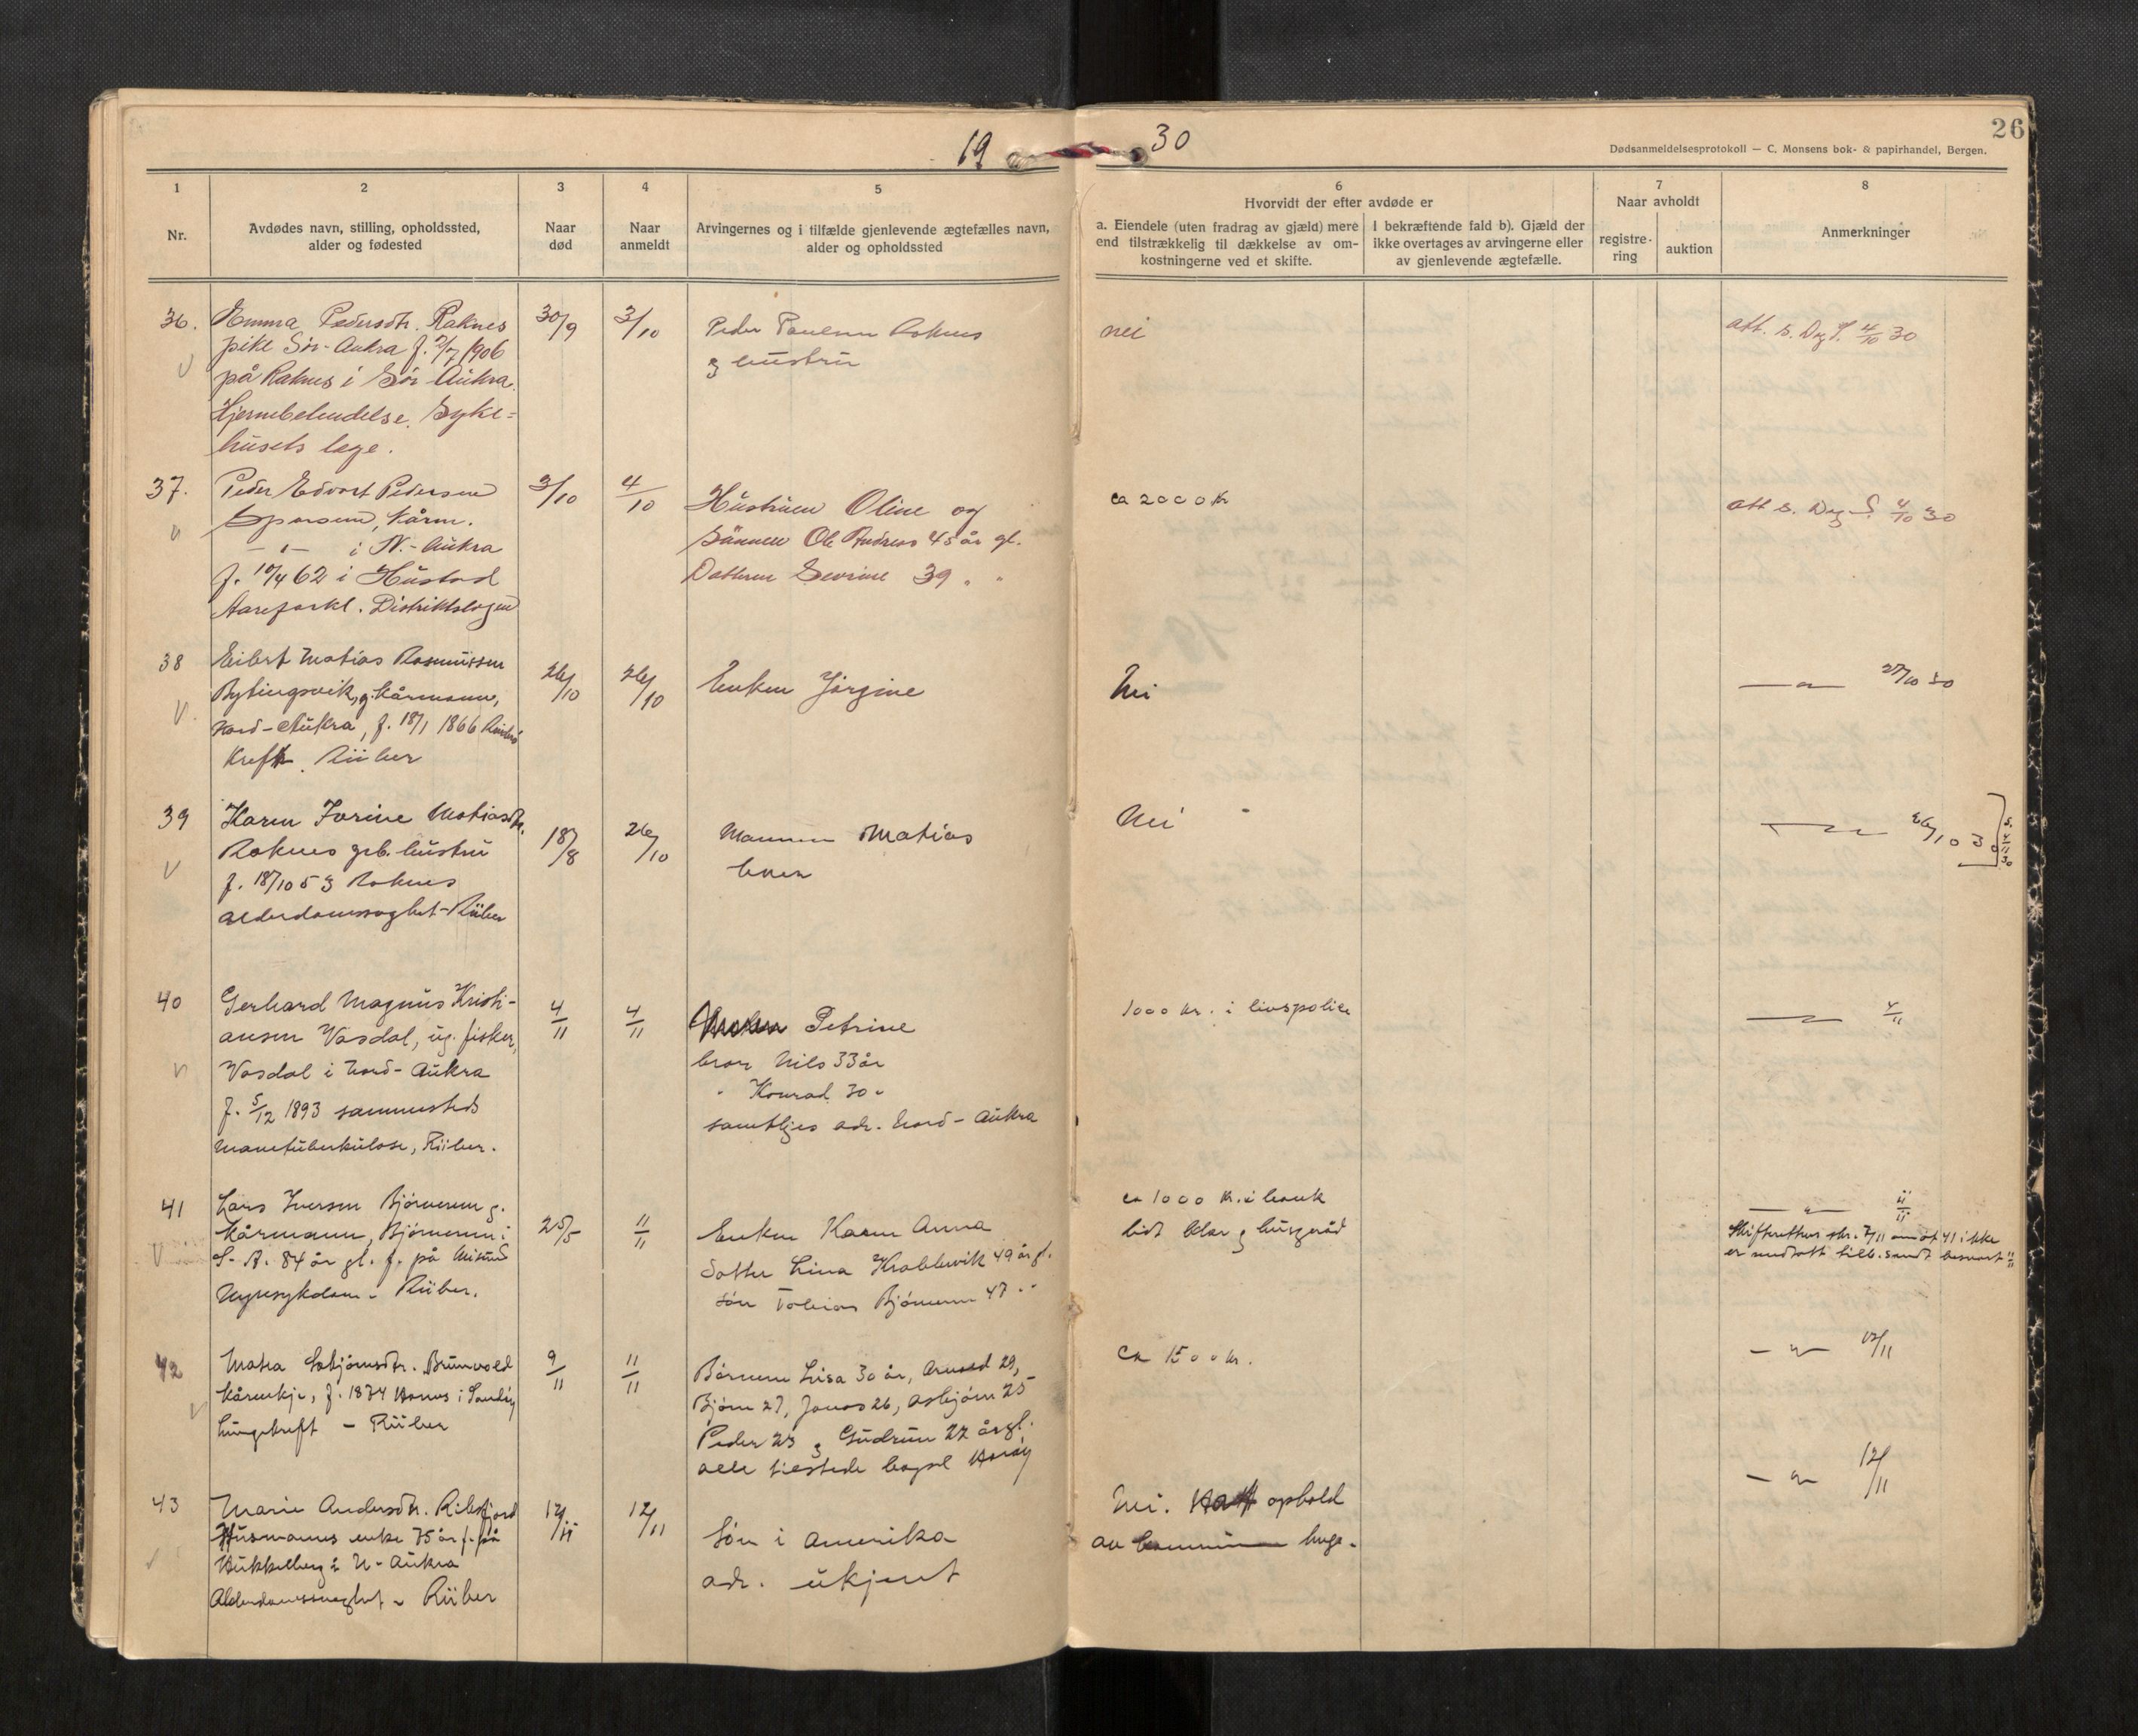 19 30
26
Dødsanmeldelsesprotokoll — C. Monsens bok- & papirhandel, Bergen.
1 2 3 4 5 6 7 8
Nr.
Avdødes navn, stilling, opholdssted,
alder og fødested
Naar
død
Naar
anmeldt
Arvingernes og i tilfælde gjenlevende ægtefælles navn,
alder og opholdssted
Hvorvidt der efter avdøde er
a. Eiendele (uten fradrag av gjæld) mere
end tilstrækkelig til dækkelse av om-
kostningerne ved et skifte.
I bekræftende fald b). Gjæld der
ikke overtages av arvingerne eller
av gjenlevende ægtefælle.
Naar avholdt
registre-
ring
auktion
Anmerkninger
36. Emma Pedersdtr. Raknes
pike Sør-Aukra f. 2/7 1906
på Raknes i Sør Aukra.
Hjernebetendelse. Syke-
husets læge.
30/9
3/10
Peder Paulsen Raknes
g hustru
nei
att. s. D 4/10 30
37. Peder Edvart Pedersen
kårm.
— " — i N.-Aukra
f. 10/4 62 i Hustad
Aareforkl. Distriktslægen
3/10
4/10
Hustruen Oline og
Sønnen Ole Andreas 45 år gl.
Datteren Sevrine 39 " "
ca 2000 kr
att s. D 4/10 30
38 Eilert Matias Rasmussen
g. kårmann,
Nord-Aukra, f. 18/1 1866
Kreft. Riiber
26/10
26/10
Enken Jørgine
Nei
— " — 27/10 30
39 Karen Iverine Matiasdtr.
Raknes geb. hustru
f. 18/10 53 Raknes
alderdomssvaghet - Riiber
18/8
26/10
Mannen Matias
Nei
— " — 26/10 30
4/11 30
40 Gerhard Magnus Kristi-
ansen Vasdal, ug. fisker,
Vasdal i Nord-Aukra
f. 5/12 1893 sammesteds
Riiber.
4/11
4/11
Petrine
bror Nils 33 år
" Konrad 30 "
samtliges adr. Nord-Aukra
1000 kr. i livspolice
— " — 4/11
41 Lars Iversen Bjørnerem g.
kårmann, Bjørnerem i
S-A. 84 år gl. f. på Misund
Nyresykdom - Riiber.
25/5
11/11
Enken Karen Anna
Datter Lina Krabbevik 49 år gl.
Søn Tobias Bjørnerem 47 " "
ca 1000 kr. i bank
lidt klær g husgeråd
— " — 11/11
Skifterettens skr. 7/11 om at 41 ikke
er mottatt tilb.sendt besvart 11/11
42
kårenkje, f. 1874 i Sandøy
Lungekreft — Riiber
9/11
11/11
Børnene Lisa 30 år, Arnold 29,
Bjørn 27, Jonas 26, Asbjørn 25
Peder 23 g Gudrun 22 år gl.
alle tilstede
ca 1500 kr.
— " — 12/11
43 Marie Andersdtr.
Husmanns enke 75 år f. på
i N-Aukra
Alderdomssvaghet - Riiber
12/11
12/11
Søn i Amerika
adr. ukjent
Nei. ophold
av
— " — 12/11